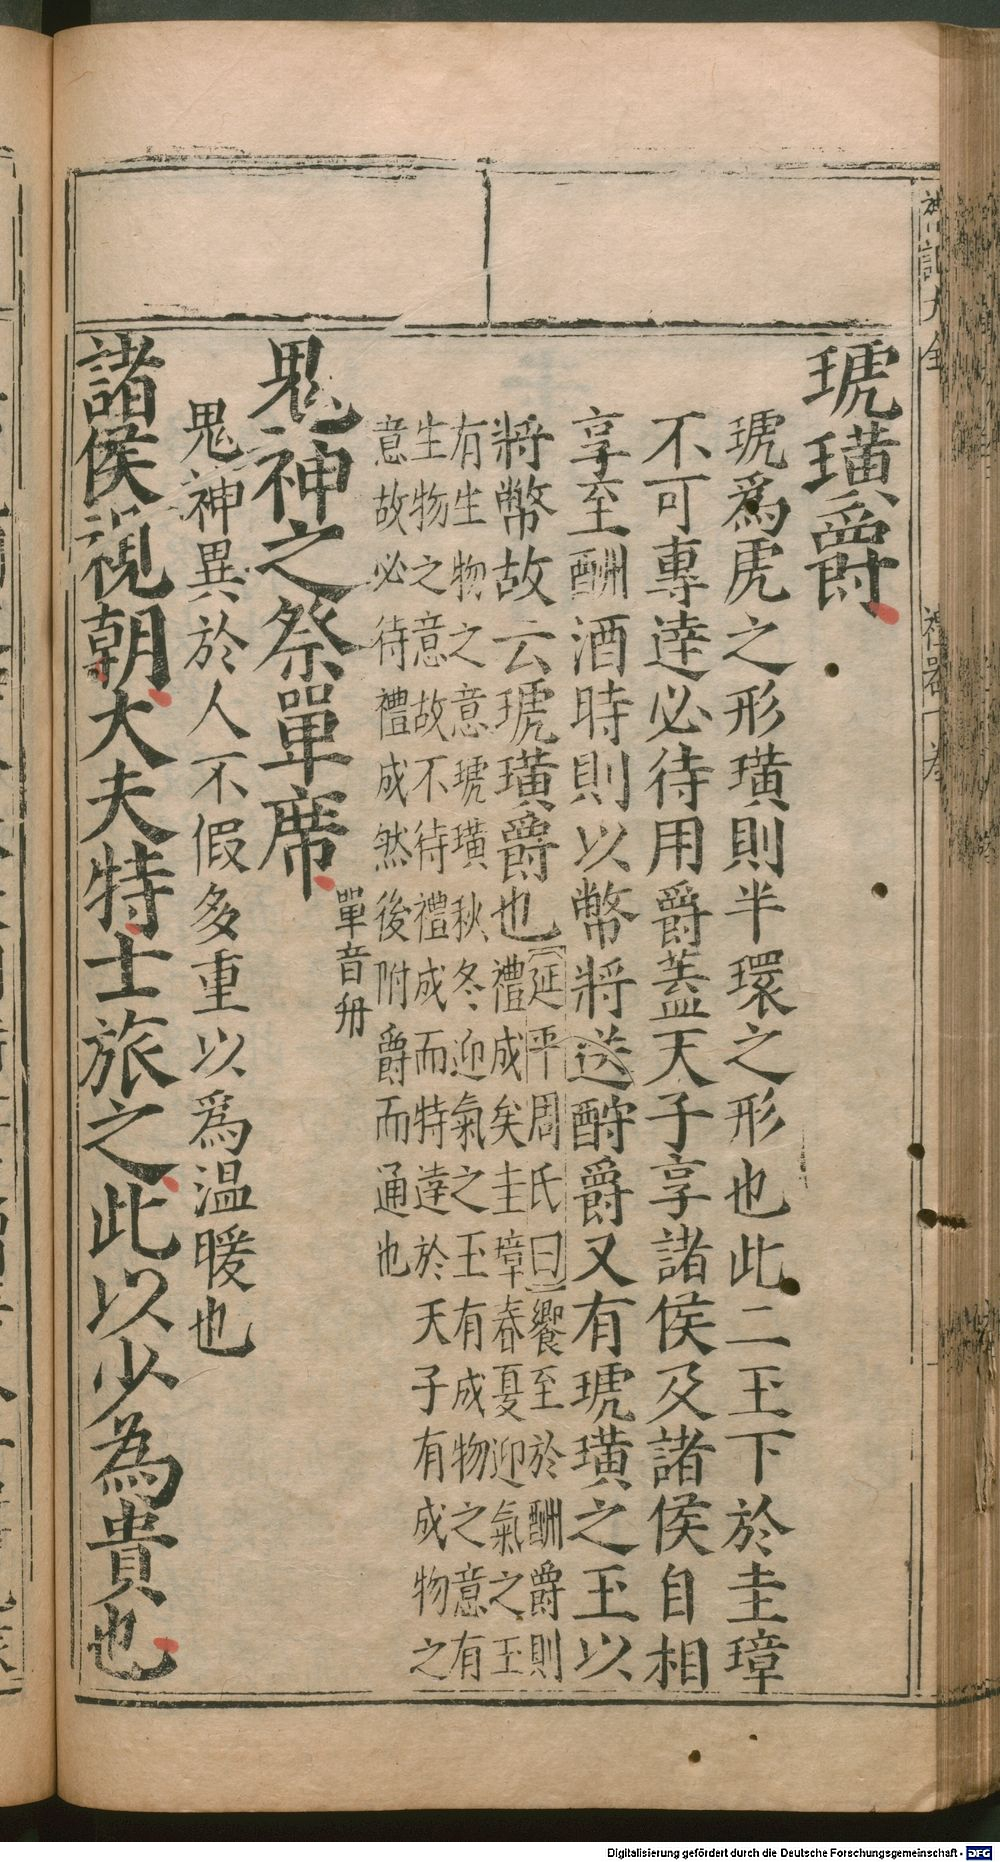 琥璜爵
琥為虎之形璜則半環之形也此二玉下於圭璋
不可專達必待用爵蓋天子享諸侯及諸侯自相
享至酬酒時則以幣將送酬爵又有琥璜之玉以
將幣故云琥璜爵也
延平周氏曰饗至於酬爵則
禮成矣圭璋春夏迎氣之玉
有生物之意琥璜秋冬迎氣之玉有成物之意有
生物之意故不待禮成而特達於天子有成物之
意故必待禮成然後附爵而通也
鬼神之祭單席
單音丹
鬼神異於人不假多重以為温暖也
諸侯視朝大夫特士旅之此以少為貴也
禮記大全
Digitalisierung gefördert durch die Deutsche Forschungsgemeinschaft - DFG